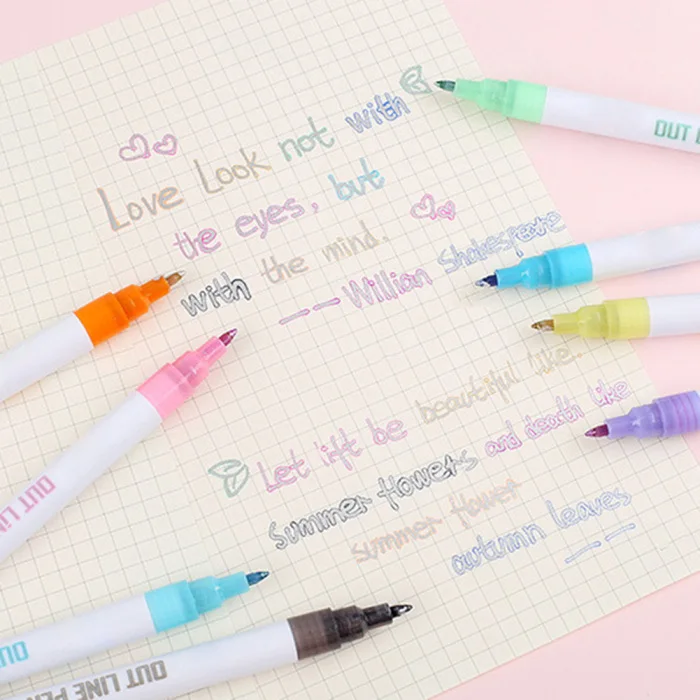 Love Look not with
the eyes, but
with the mind.
——Willian Shakespeare
Let lift be beautiful like.
summer flowers and death like
summer flower
autumn leaves
OUT L
OUT LI
OU
OUT LINE PEN